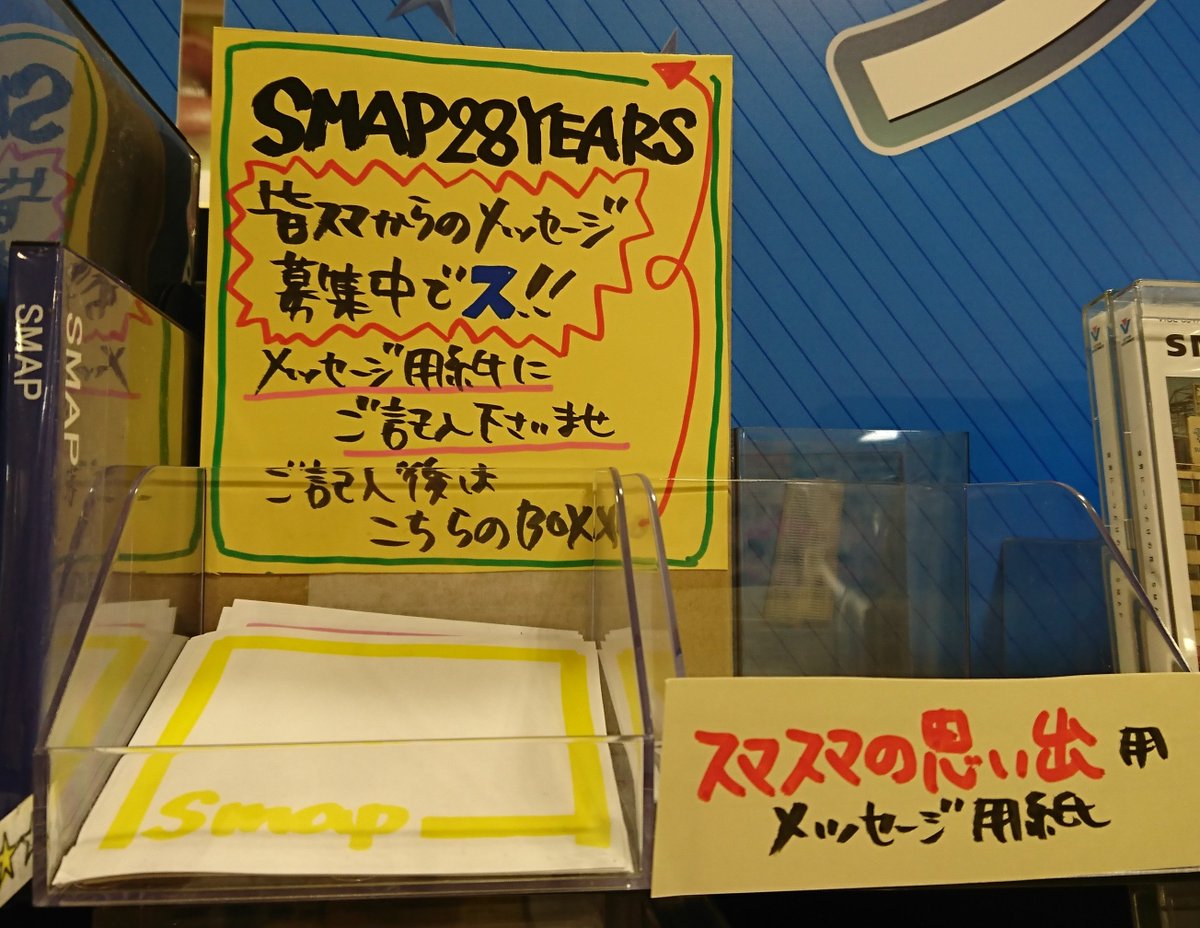 SMAP28YEARS
皆スマからのメッセージ
募集中でス!!
メッセージ用紙に
ご記入下さいませ
ご記入後は
こちらのBOXX
smap
スマスマの思い出用
メッセージ用紙
SMAP
SMAP